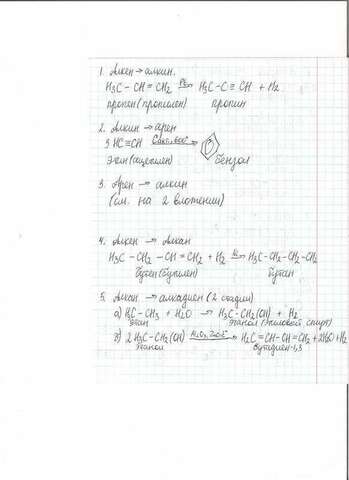 1. Алкен → алкин.
H₃C – CH = CH₂ → H₃C – C ≡ CH + H₂
пропен (пропилен) пропин
2. Алкин → арен
3 HC≡CH →
этин (ацетилен) бензол
3. Арен → алкин
(см. на 2 вложении)
4. Алкен → Алкан
H₃C – CH₂ – CH = CH₂ + H₂ → H₃C – CH₂ – CH₂ – CH₃
бутен (бутилен) бутан
5. Алкан → алкадиен (2 стадии)
а) H₃C – CH₃ + H₂O → H₃C – CH₂(OH) + H₂
этан этанол (этиловый спирт)
2 H₃C – CH₂(OH) → H₂C = CH – CH = CH₂ + 2H₂O + H₂
этанол бутадиен-1,3